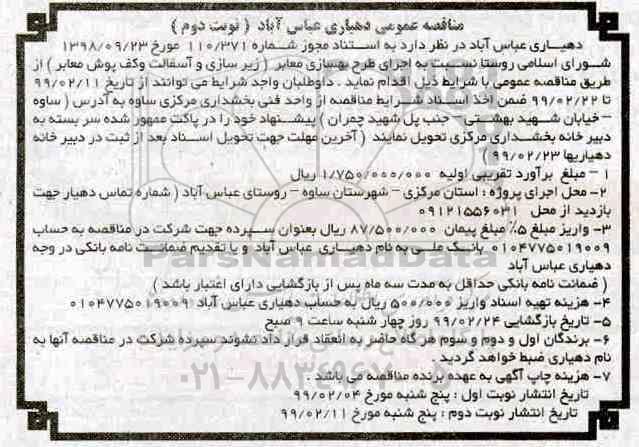 مناقصه عمومی دهیاری عباس آباد ( نوبت دوم )
دهیاری عباس آباد در نظر دارد به استناد مجوز شماره ۱۱۰/۳۷۱ مورخ ۱۳۹۸/۰۹/۲۳
شورای اسلامی روستا نسبت به اجرای طرح بهسازی معابر ( زیر سازی و آسفالت وکف پوش معابر ) از
طریق مناقصه عمومی با شرایط ذیل اقدام نماید . داوطلبان واجد شرایط می توانند از تاریخ ۹۹/۰۲/۱۱
تا ۹۹/۰۲/۲۲ ضمن اخذ اسناد شرایط مناقصه از واحد فنی بخشداری مرکزی ساوه به آدرس ( ساوه
– خیابان شهید بهشتی – جنب پل شهید چمران ) پیشنهاد خود را در پاکت ممهور شده سر بسته به
دبیر خانه بخشداری مرکزی تحویل نمایند ( آخرین مهلت جهت تحویل اسناد بعد از ثبت در دبیر خانه
دهیاریها ۹۹/۰۲/۲۳ )
۱ – مبلغ برآورد تقریبی اولیه ۱/۷۵۰/۰۰۰/۰۰۰ ریال
۲- محل اجرای پروژه : استان مرکزی – شهرستان ساوه – روستای عباس آباد ( شماره تماس دهیار جهت
بازدید از محل ۰۹۱۲۱۵۵۶۰۳۱
۳- واریز مبلغ ۵٪ مبلغ پیمان ۸۷/۵۰۰/۰۰۰ ریال بعنوان سپرده جهت شرکت در مناقصه به حساب
۰۱۰۴۷۷۵۰۱۹۰۰۹ بانک ملی به نام دهیاری عباس آباد و یا تقدیم ضمانت نامه بانکی در وجه
دهیاری عباس آباد
( ضمانت نامه بانکی حداقل به مدت سه ماه پس از بازگشایی دارای اعتبار باشد )
۴- هزینه تهیه اسناد واریز ۵۰۰/۰۰۰ ریال به حساب دهیاری عباس آباد ۰۱۰۴۷۷۵۰۱۹۰۰۹
۵- تاریخ بازگشایی ۹۹/۰۲/۲۴ روز چهار شنبه ساعت ۹ صبح
۶- برندگان اول و دوم و سوم هر گاه حاضر به انعقاد قرار داد نشوند سپرده شرکت در مناقصه آنها به
نام دهیاری ضبط خواهد گردید .
۷- هزینه چاپ آگهی به عهده برنده مناقصه می باشد .
تاریخ انتشار نوبت اول : پنج شنبه مورخ ۹۹/۰۲/۰۴
تاریخ انتشار نوبت دوم : پنج شنبه مورخ ۹۹/۰۲/۱۱
ParsNamadData